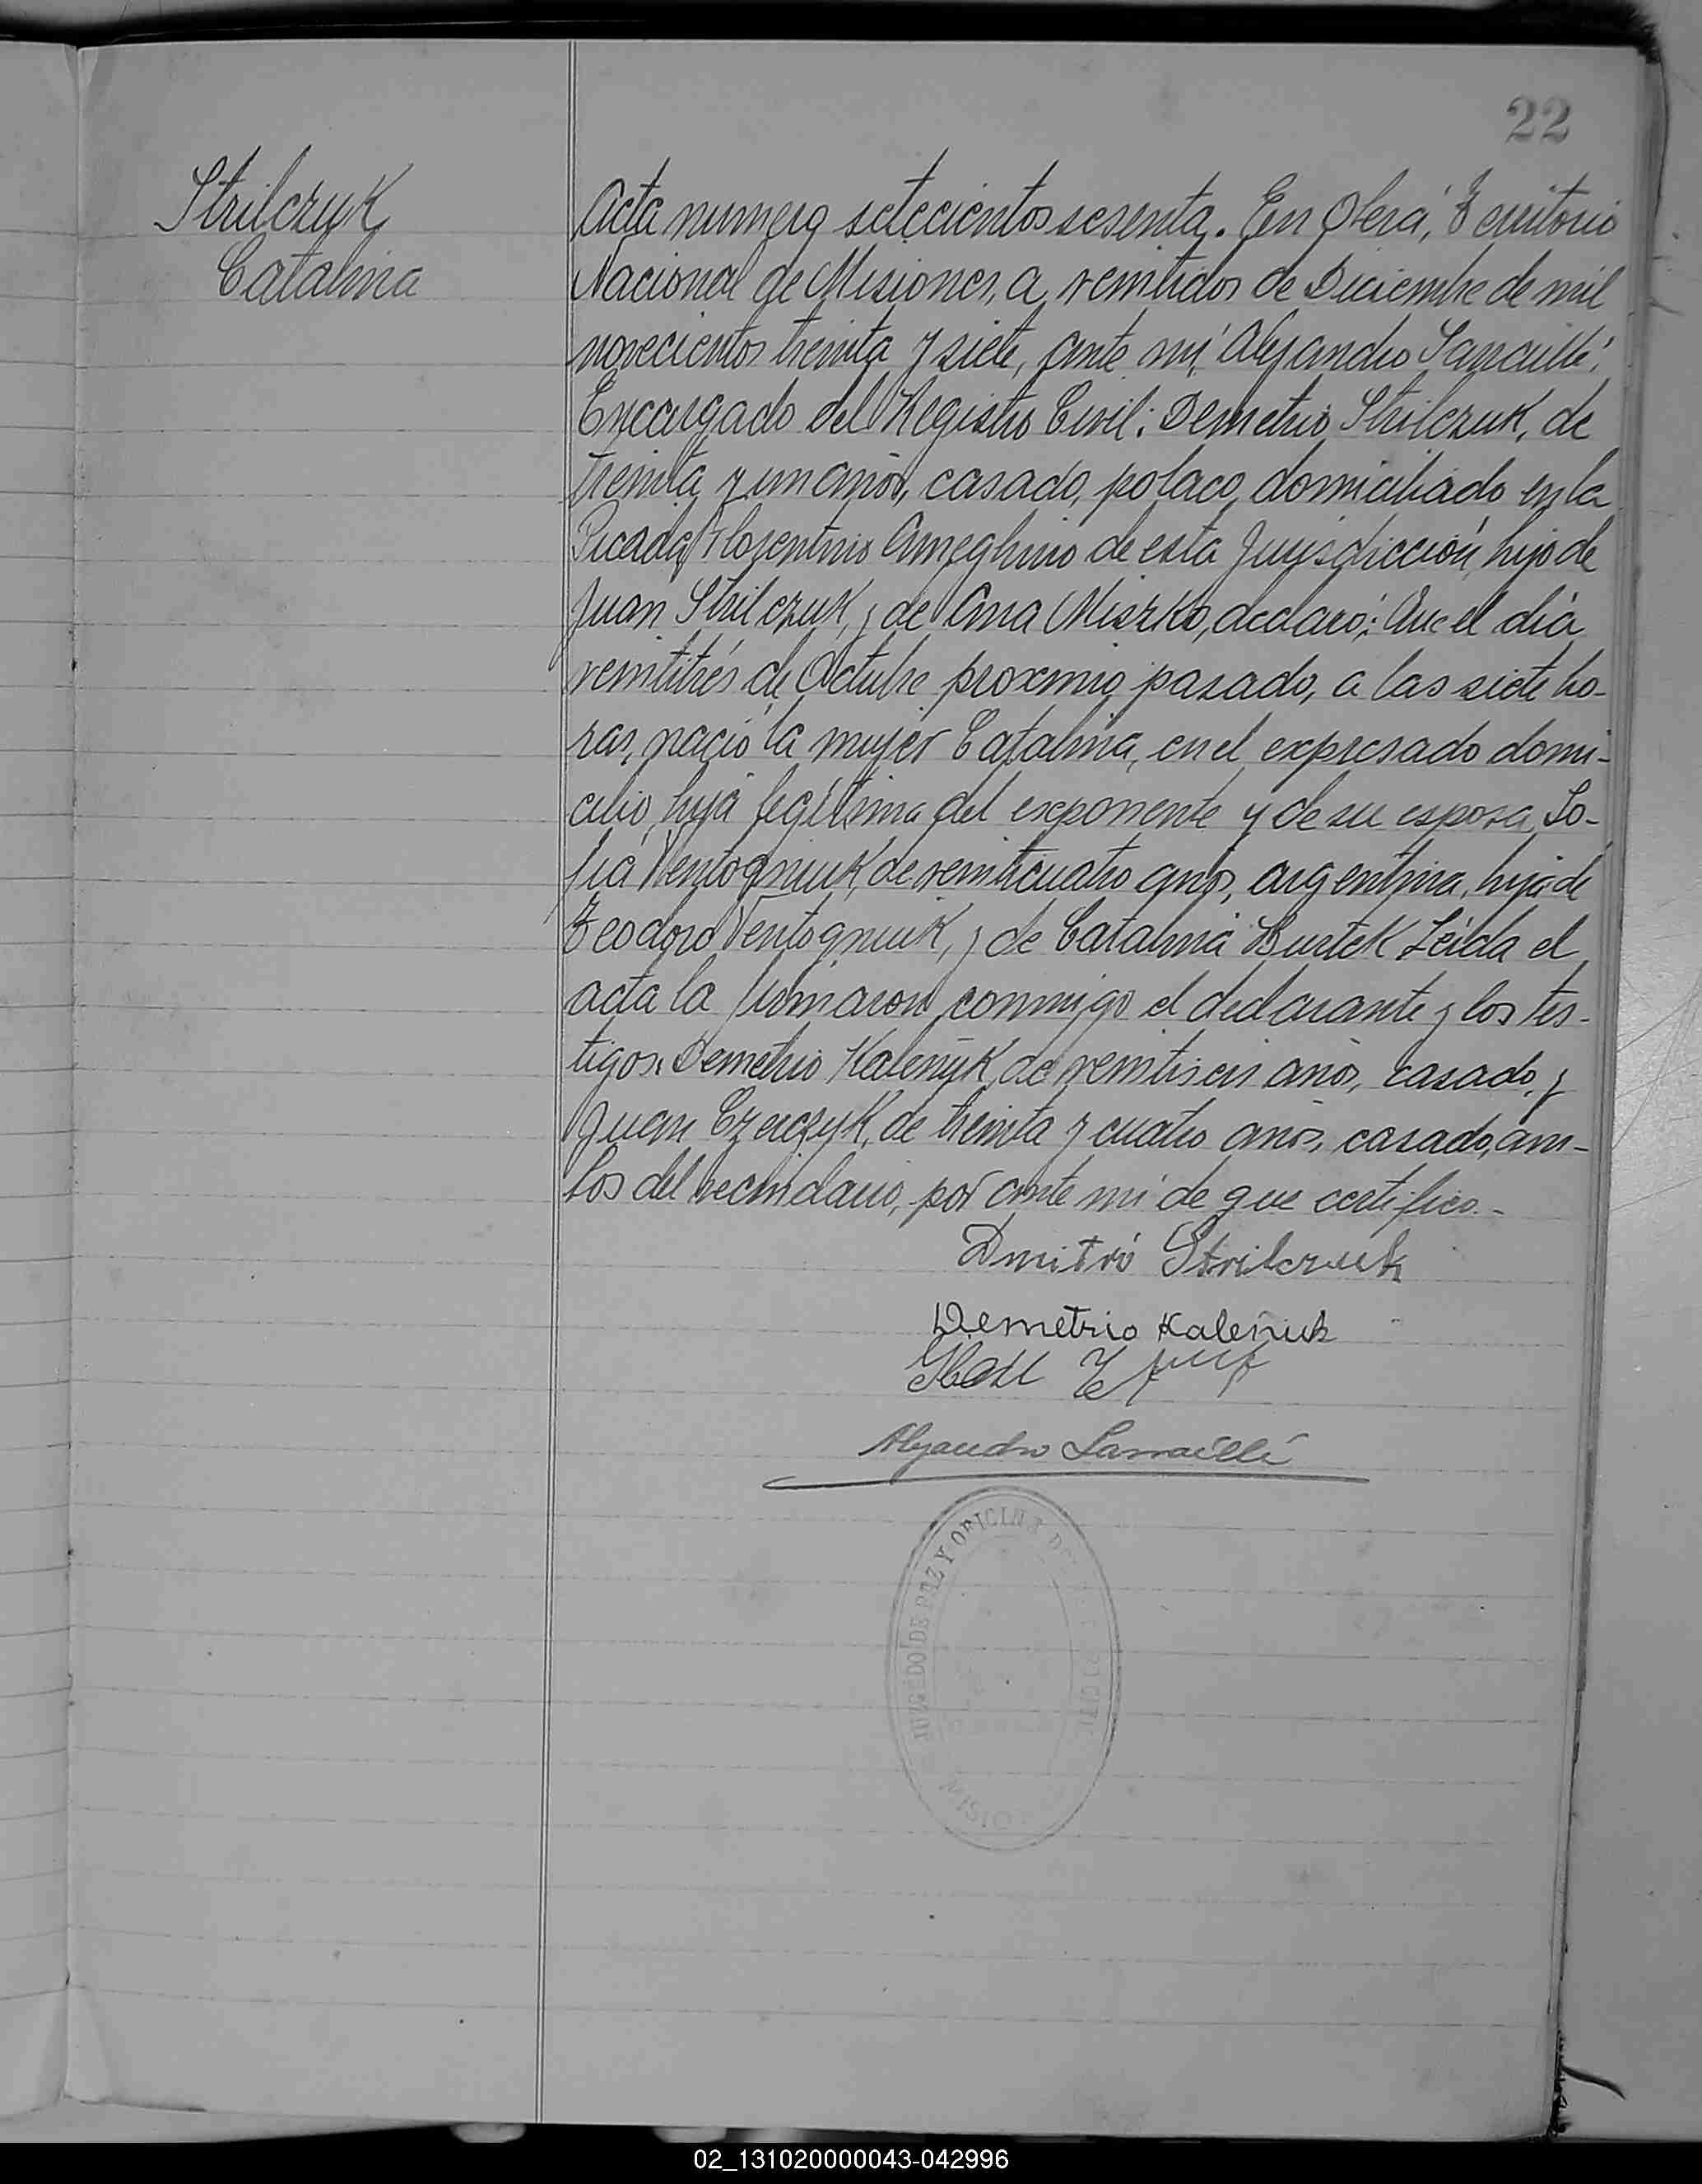 22
Strilczuk
Catalina
Acta numero setecientos sesenta. En Oberá, Territorio
Nacional de Misiones, a veintidos de Diciembre de mil
novecientos treinta y siete, ante mí, Alejandro Larraillé,
Encargado del Registro Civil: Demetrio Strilczuk, de
treinta y un años, casado, polaco, domiciliado en la
Picada Florentino Ameghino de esta Jurisdicción, hijo de
Juan Strilczuk, y de Ana Miszko, declaró: Que el día
veintitrés de Octubre proximo pasado, a las siete ho-
ras, nació la mujer Catalina, en el expresado domi-
cilio, hija legítima del exponente y de su esposa So-
fía Wentogniuk, de veinticuatro años, argentina, hija de
Teodoro Ventogniuk, y de Catalina Burtek Leida el
acta la firmaron conmigo el declarante y los tes-
tigos: Demetrio Kaleñyk, de veintiseis años, casado, y
Juan Czerczyk, de treinta y cuatro años, casado, am-
bos del vecindario, por ante mí de que certifico.-
Dmitró Strilczuk
Demetrio Kaleñuk
Alejandro Larraillé
JUZGADO DE PAZ Y OFICINA DE
MISIO
02_131020000043-042996